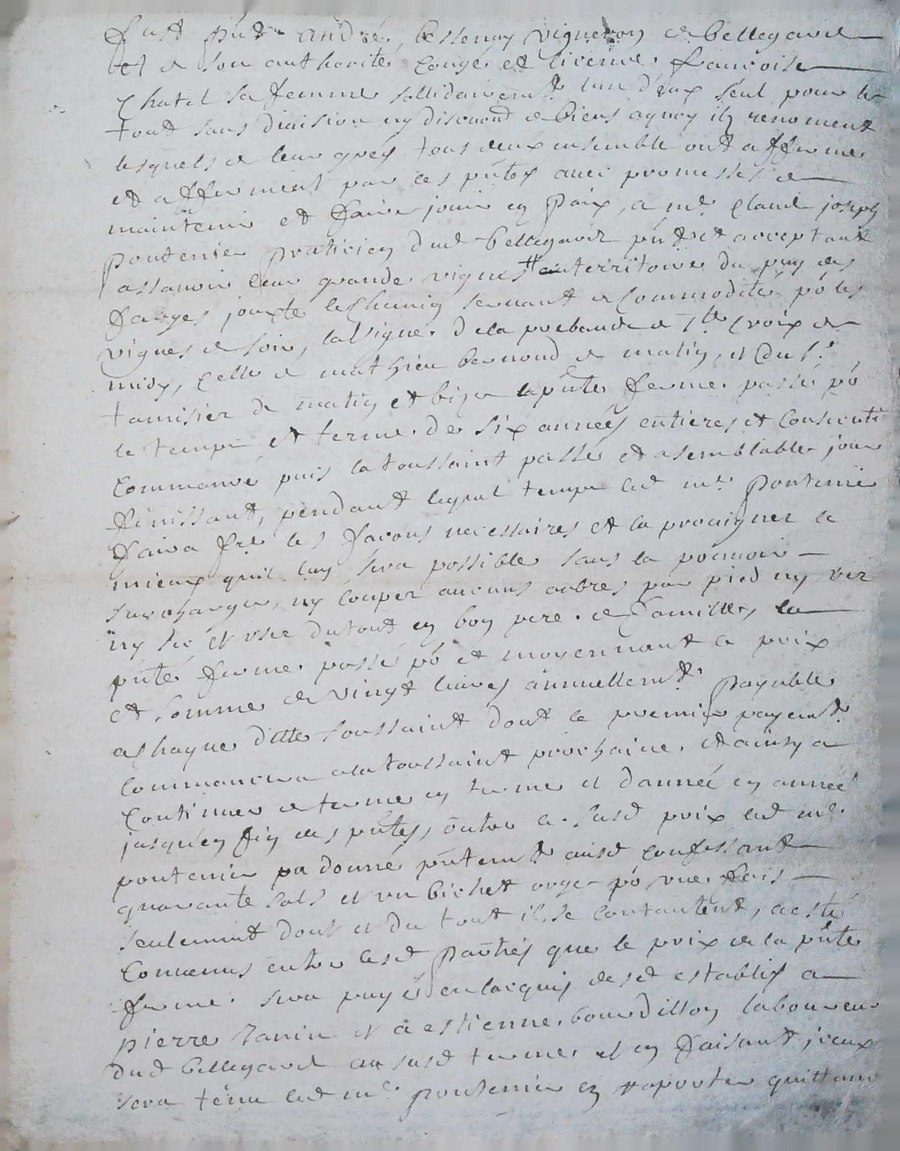 Fust pñt andré bessenay vigneron de bellegarde
et de son authorité congé et licence francoise
Chatel sa femme sollidairemt lun d'eux seul pour le
tout sans division ny discution de biens a quoy ilz renoncent
lesquels de leur gré tous deux ensemble ont afferme
et afferment par ces pñtes avec promesse de
maintenir et faire jouir en paix, a me Claude joseph
pontenier praticien dud bellegarde pñt et acceptant
assavoir leur grande vigne territoire du puy des
farges jouxte le chemin servant de commodité po les
vignes de soir, la vigne de la prebande de Ste Croix de
midy, celle de mathieu bernond de matin, et du sr
tamisier de matin et bize la pñte ferme passé po
le temps et terme de six années entieres et consecutives
commancé puis la toussaint passé et a semblable jour
finissant, pendant lequel temps led me pontenier
faira fre les facons necessaires et la provigner le
mieux quil luy sera possible sans la pouvoir
surcharger, ny couper aucuns arbres par pied ny vif
ny sec et user du tout en bon pere de famille, la
pñte ferme passé po et moyennant le prix
et somme de vingt livres annuellemt payable
a chaque ditte toussaint dont le premier payemt
commancera a la toussaint prochaine, et ainsy a
continuer de terme en terme et d'année en année
jusqu'en fin des pñtes, outre le susd prix led me
pontenier a donné pñtemt ausd confessant
quarante sols et un bichet orge po une fois
seulement dont et du tout il se contantent, a esté
convenus entre lesd parties que le prix de la pñte
ferme sera payé en lacquis desd establis a
pierre et a estienne bourdillon laboureur
dud bellegarde au susd terme et en faisant jceux
sera tenu led me pontenier en raporter quittance